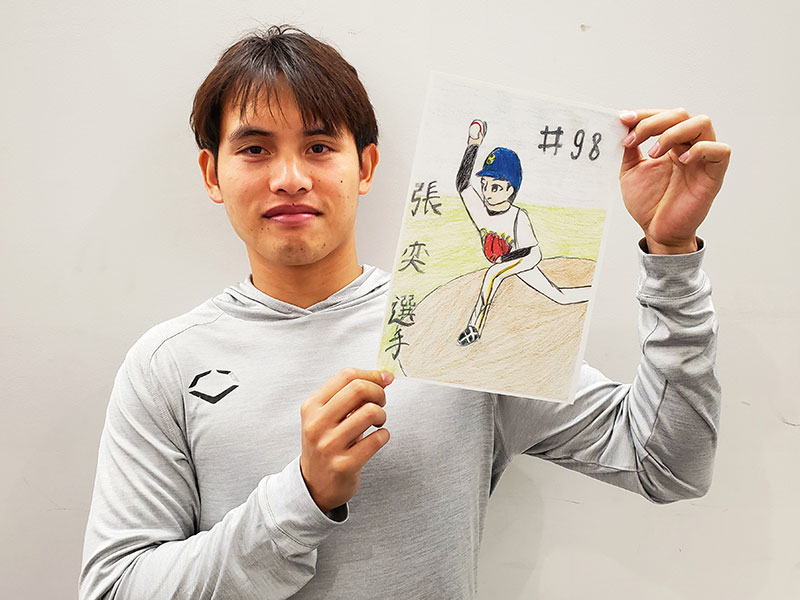 #98
張奕選手